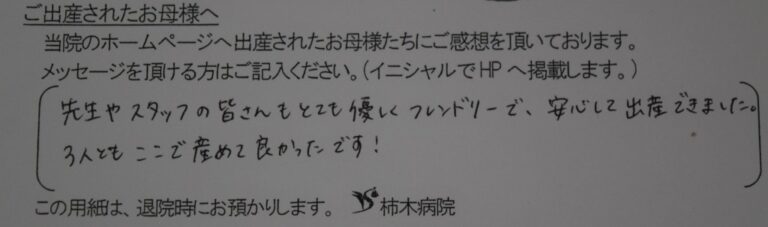 ご出産されたお母様へ
当院のホームページへ出産されたお母様たちにご感想を頂いております。
メッセージを頂ける方はご記入ください。(イニシャルでHPへ掲載します。)
先生やスタッフの皆さんもとても優しくフレンドリーで、安心して出産できました。
3人ともここで産めて良かったです!
この用細は、退院時にお預かりします。 柿木病院